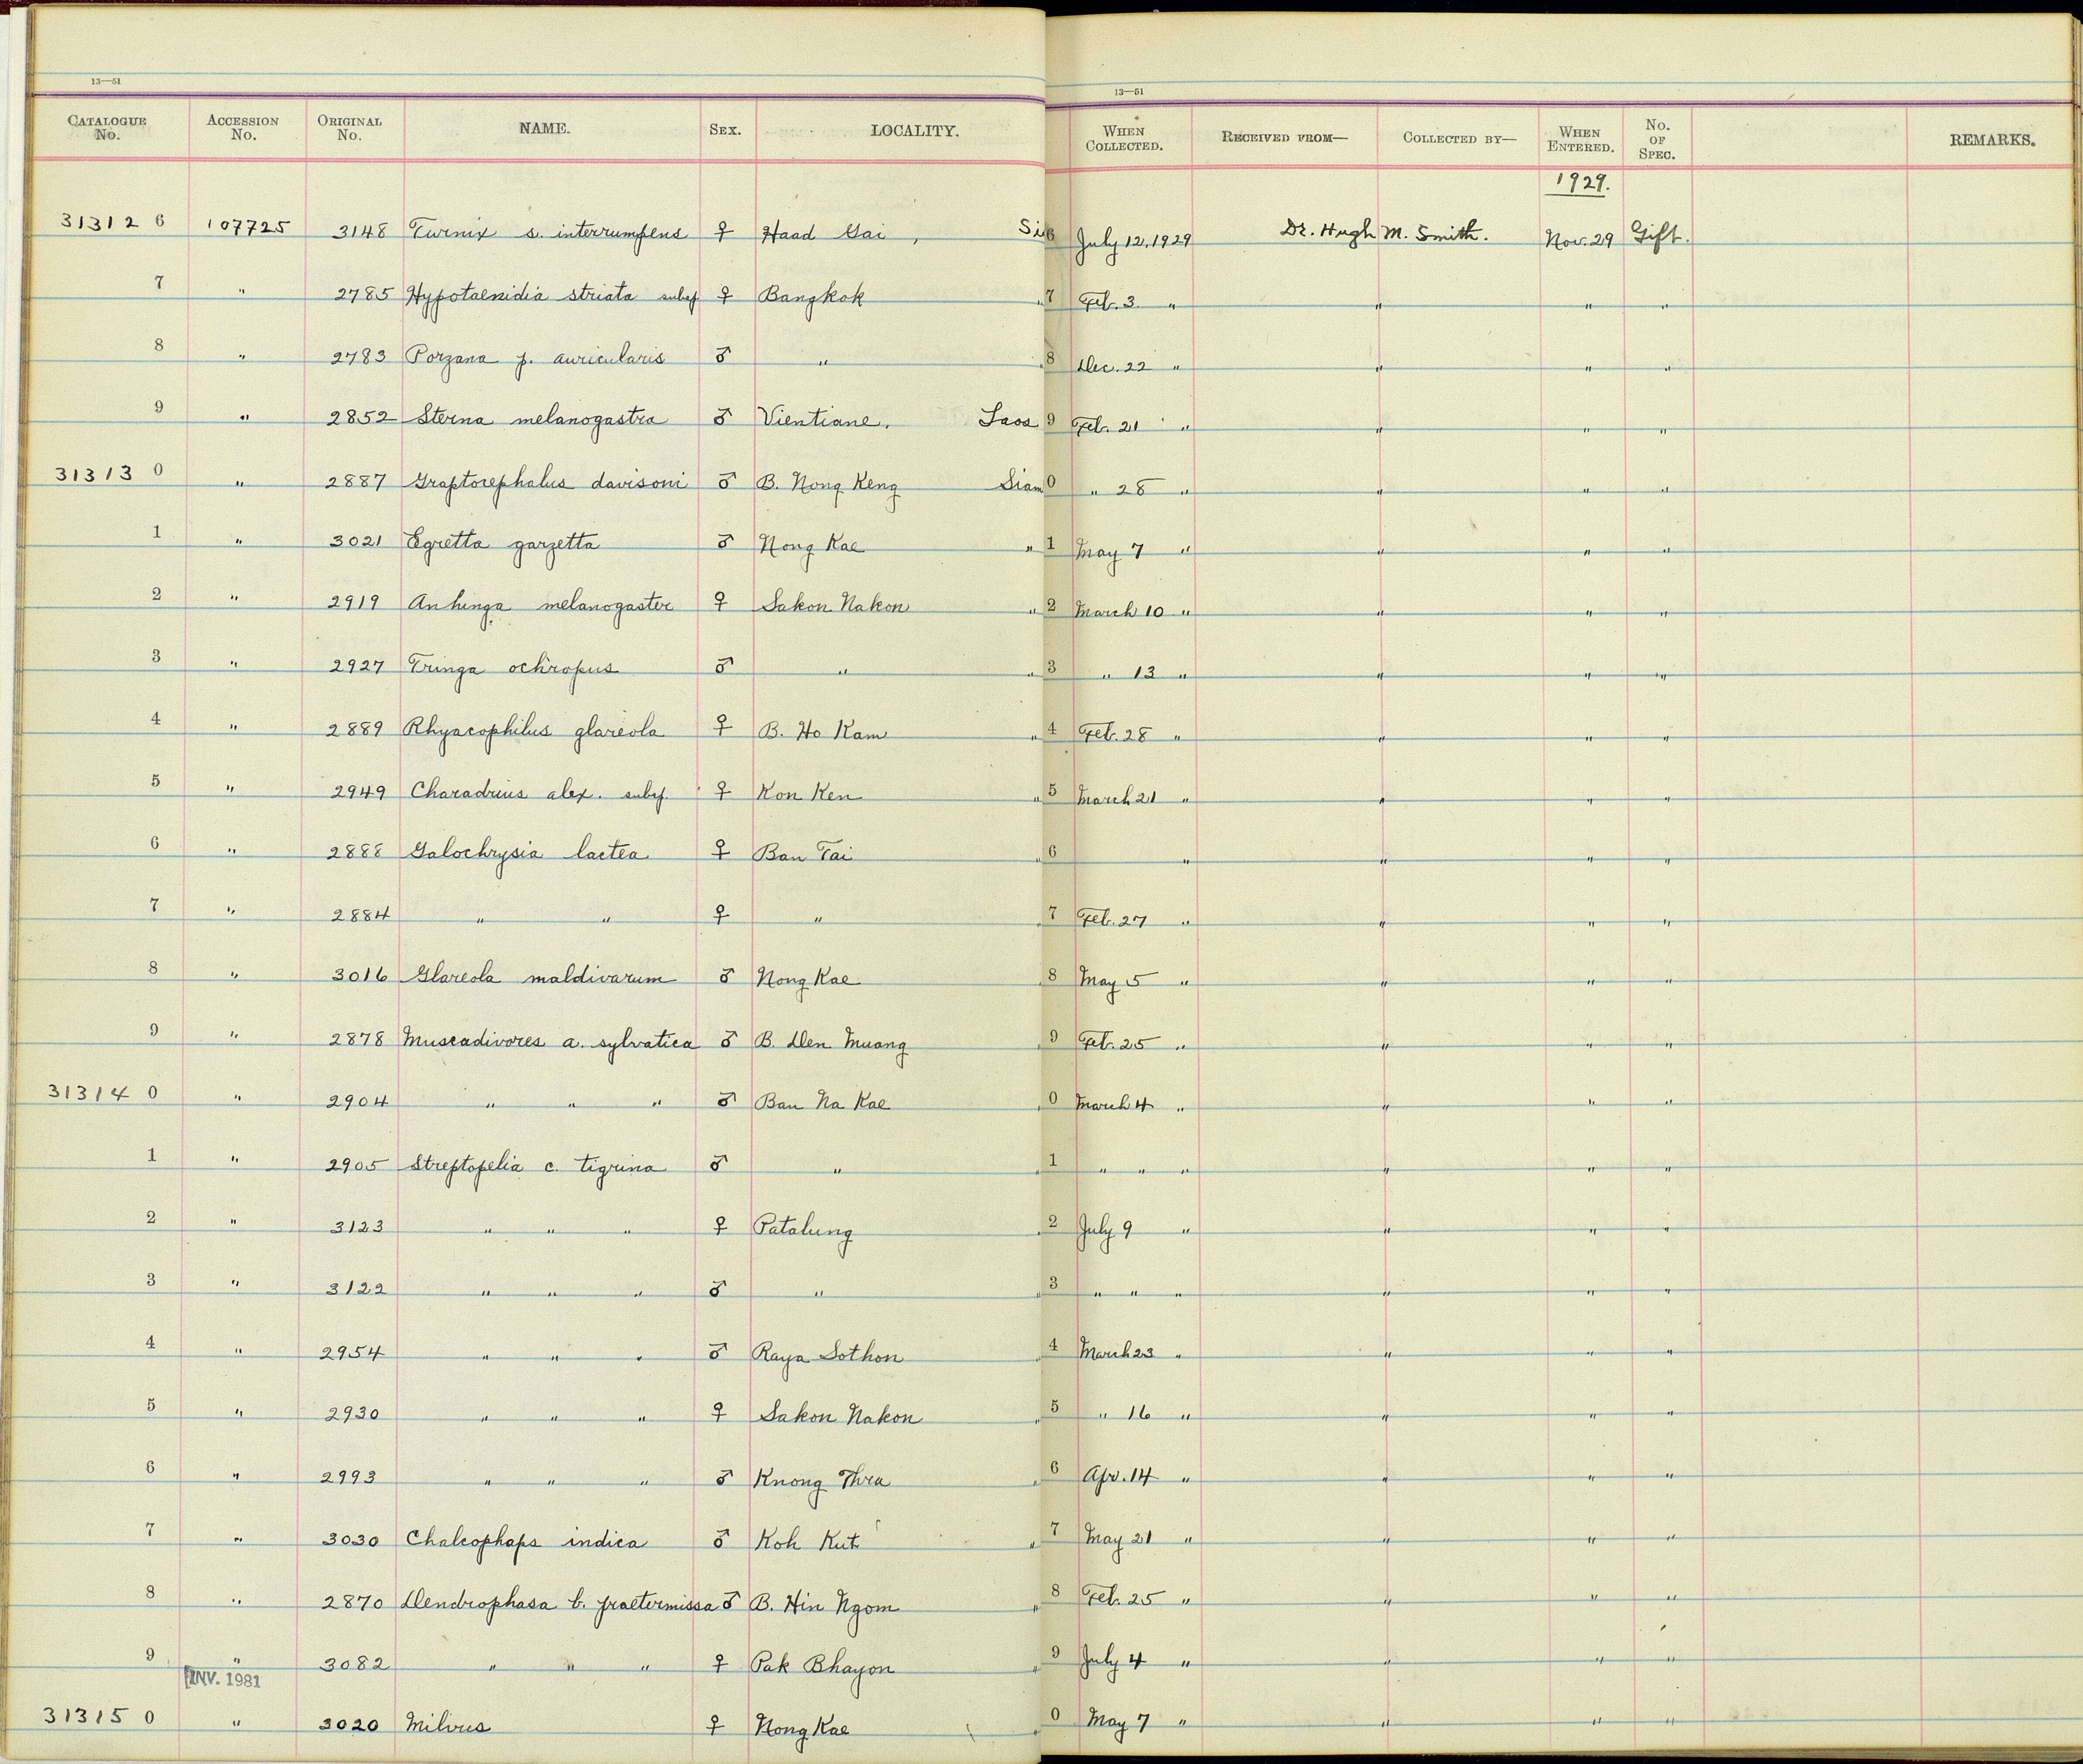 13—51
13—51
CATALOGUE No. ACCESSION No. ORIGINAL No. NAME. SEX. LOCALITY. WHEN COLLECTED. RECEIVED FROM— COLLECTED BY— WHEN ENTERED. No. OF SPEC. REMARKS.
1929.
31312 6 107725 3148 Turnix s. interrumpens ♀ Haad Gai, Si 6 July 12, 1929 Dr. Hugh M. Smith. Nov. 29 Gift.
7 " 2785 Hypotaenidia striata subsp ♀ Bangkok " 7 Feb. 3 " " " "
8 " 2783 Porzana p. auricularis ♂ " " 8 Dec. 22 " " " "
9 " 2852 Sterna melanogastra ♂ Vientiane. Laos 9 Feb. 21 " " " "
31313 0 " 2887 Graptocephalus davisoni ♂ B. Nong Keng Siam 0 " 28 " " " "
1 " 3021 Egretta garzetta ♂ Nong Kae " 1 May 7 " " " "
2 " 2919 Anhinga melanogaster ♀ Sakon Nakon " 2 March 10 " " " "
3 " 2927 Tringa ochropus ♂ " " 3 " 13 " " " "
4 " 2889 Rhyacophilus glareola ♀ B. Ho Kam " 4 Feb. 28 " " " "
5 " 2949 Charadrius alex. subsp. ♀ Kon Ken " 5 March 21 " " " "
6 " 2888 Galochrysia lactea ♀ Ban Tai " 6 " " " "
7 " 2884 " " ♀ " " 7 Feb. 27 " " " "
8 " 3016 Glareola maldivarum ♂ Nong Kae " 8 May 5 " " " "
9 " 2878 Muscadivores a. sylvatica ♂ B. Den Muang " 9 Feb. 25 " " " "
31314 0 " 2904 " " " ♂ Ban Na Kae " 0 March 4 " " " "
1 " 2905 Streptopelia c. tigrina ♂ " " 1 " " " " " "
2 " 3123 " " " ♀ Patalung " 2 July 9 " " " "
3 " 3122 " " " ♂ " " 3 " " " " " "
4 " 2954 " " " ♂ Raya Sothon " 4 March 23 " " " "
5 " 2930 " " " ♀ Sakon Nakon " 5 " 16 " " " "
6 " 2993 " " " ♂ Knong Phra " 6 Apr. 14 " " " "
7 " 3030 Chalcophaps indica ♂ Koh Kut " 7 May 21 " " " "
8 " 2870 Dendrophasa b. praetermissa ♂ B. Hin Ngom " 8 Feb. 25 " " " "
9 " 3082 " " " ♀ Pak Bhayon " 9 July 4 " " " "
INV. 1981
31315 0 " 3020 Milvus ♀ Nong Kae " 0 May 7 " " " "